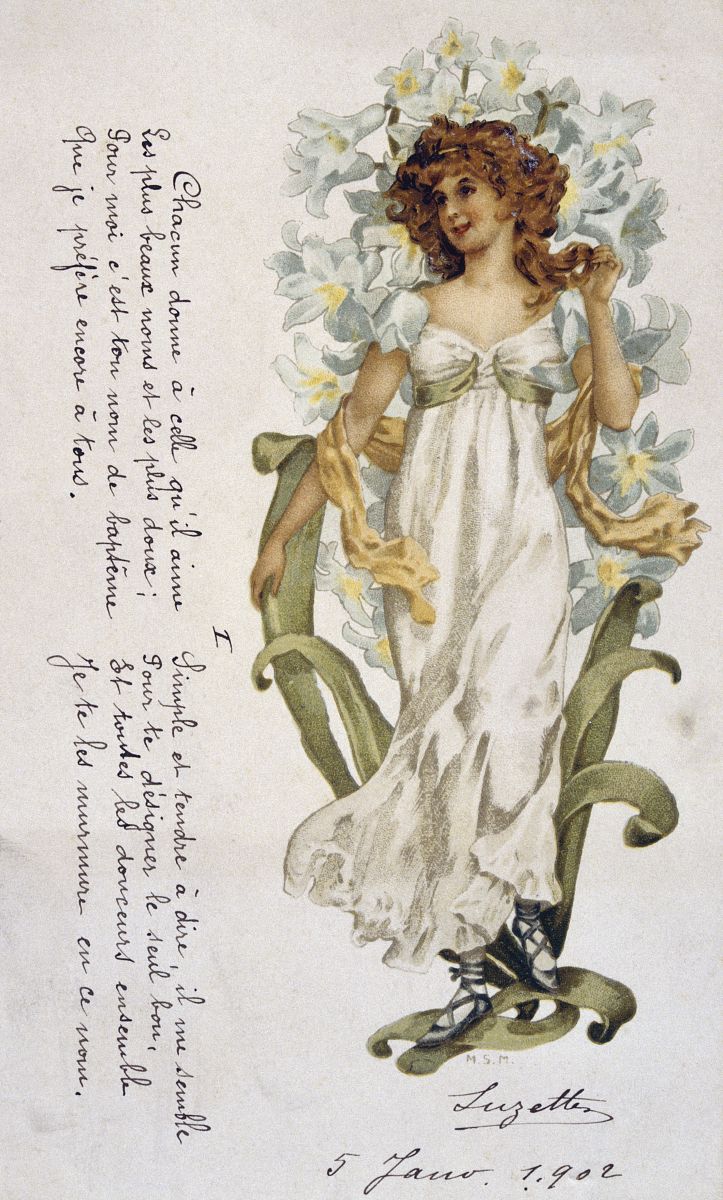 I
Chacun donne à celle qu'il aime
Les plus beaux noms et les plus doux ;
Pour moi c'est ton nom de baptême
Que je préfère encore à tous.
Simple et tendre à dire, il me semble
Pour te désigner le seul bon,
Et toutes les douceurs ensemble
Je te les murmure en ce nom.
M.S.M.
Suzette
5 Janv. 1.902